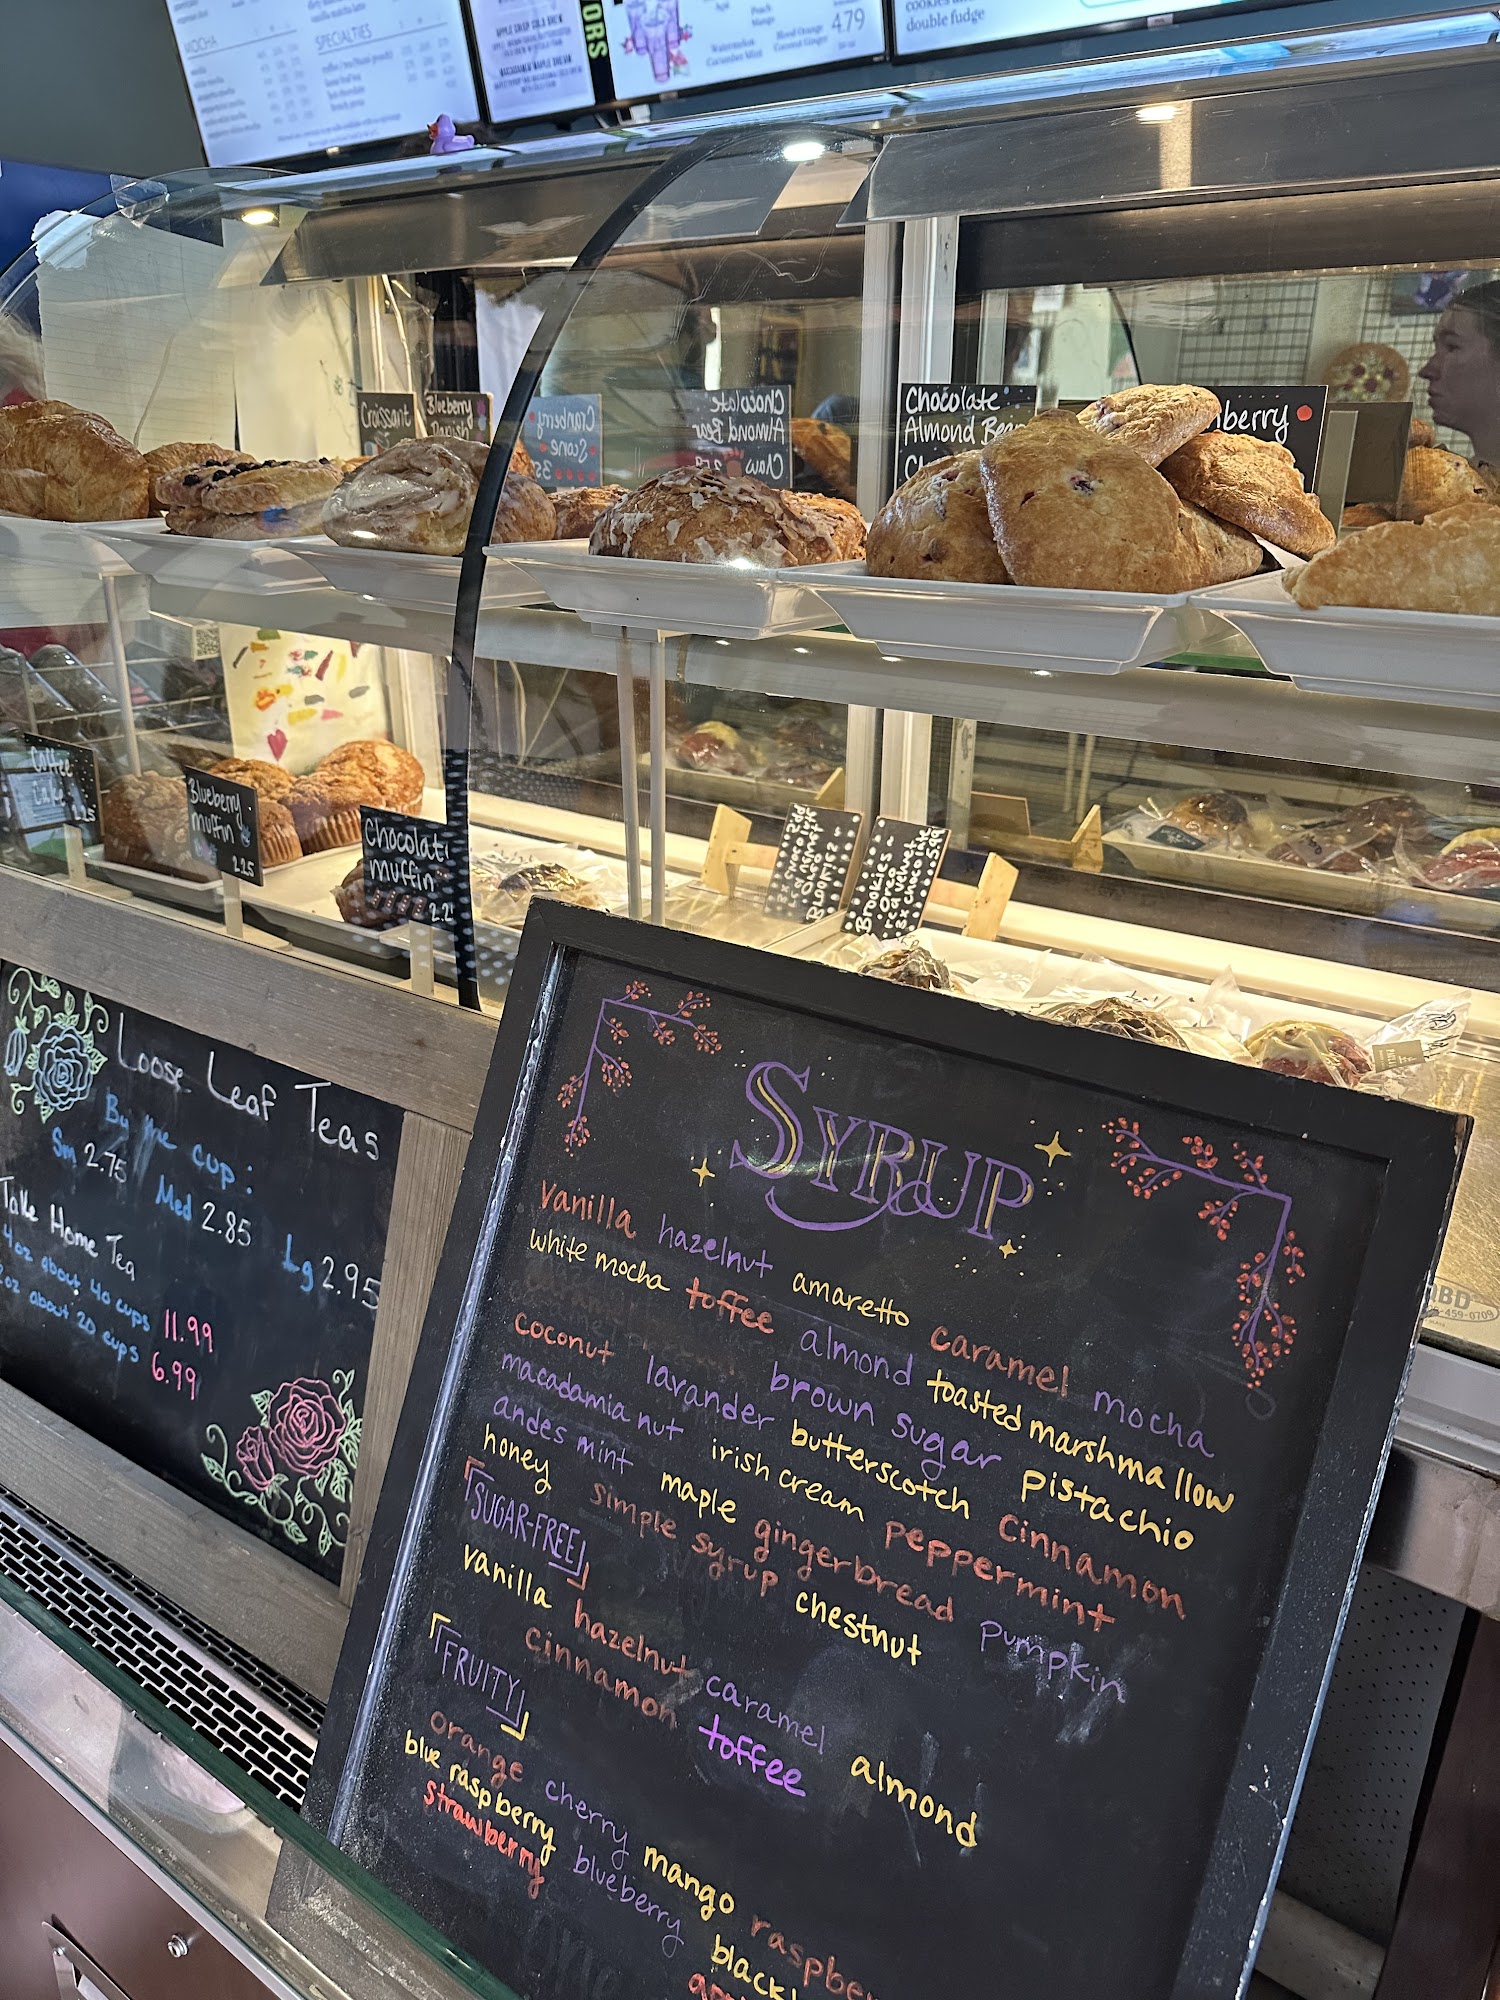 MOCHA
SPECIALTIES
APPLE CRISP COLD BREW
MACADAMIA MAPLE DREAM
ORS
Peach
Mango
Watermelon
Cucumber Mint
Blood Orange
Coconut Ginger
4.79
cookies
double fudge
Croissant
Blueberry
Danish
Cranberry
Scone
Chocolate
Almond Bear
Claw
Chocolate
Almond Bear
nberry
Coffee
Cake
2.25
Blueberry
muffin
2.25
Chocolate
muffin
2.2
Bloomies
Brookies ~
Oreo
red velvet
3x chocolate
5.99
Loose Leaf Teas
By the cup:
Sm 2.75 Med 2.85 Lg 2.95
Take Home Tea
4oz about 40 cups 11.99
2oz about 20 cups 6.99
SYRUP
vanilla hazelnut amaretto caramel mocha
white mocha toffee almond toasted marshmallow
coconut lavander brown sugar pistachio
macadamia nut irish cream butterscotch cinnamon
andes mint maple gingerbread peppermint
honey simple syrup chestnut pumpkin
SUGAR-FREE
vanilla hazelnut caramel almond
cinnamon toffee
FRUITY
orange cherry mango raspber
blue raspberry blueberry black
strawberry